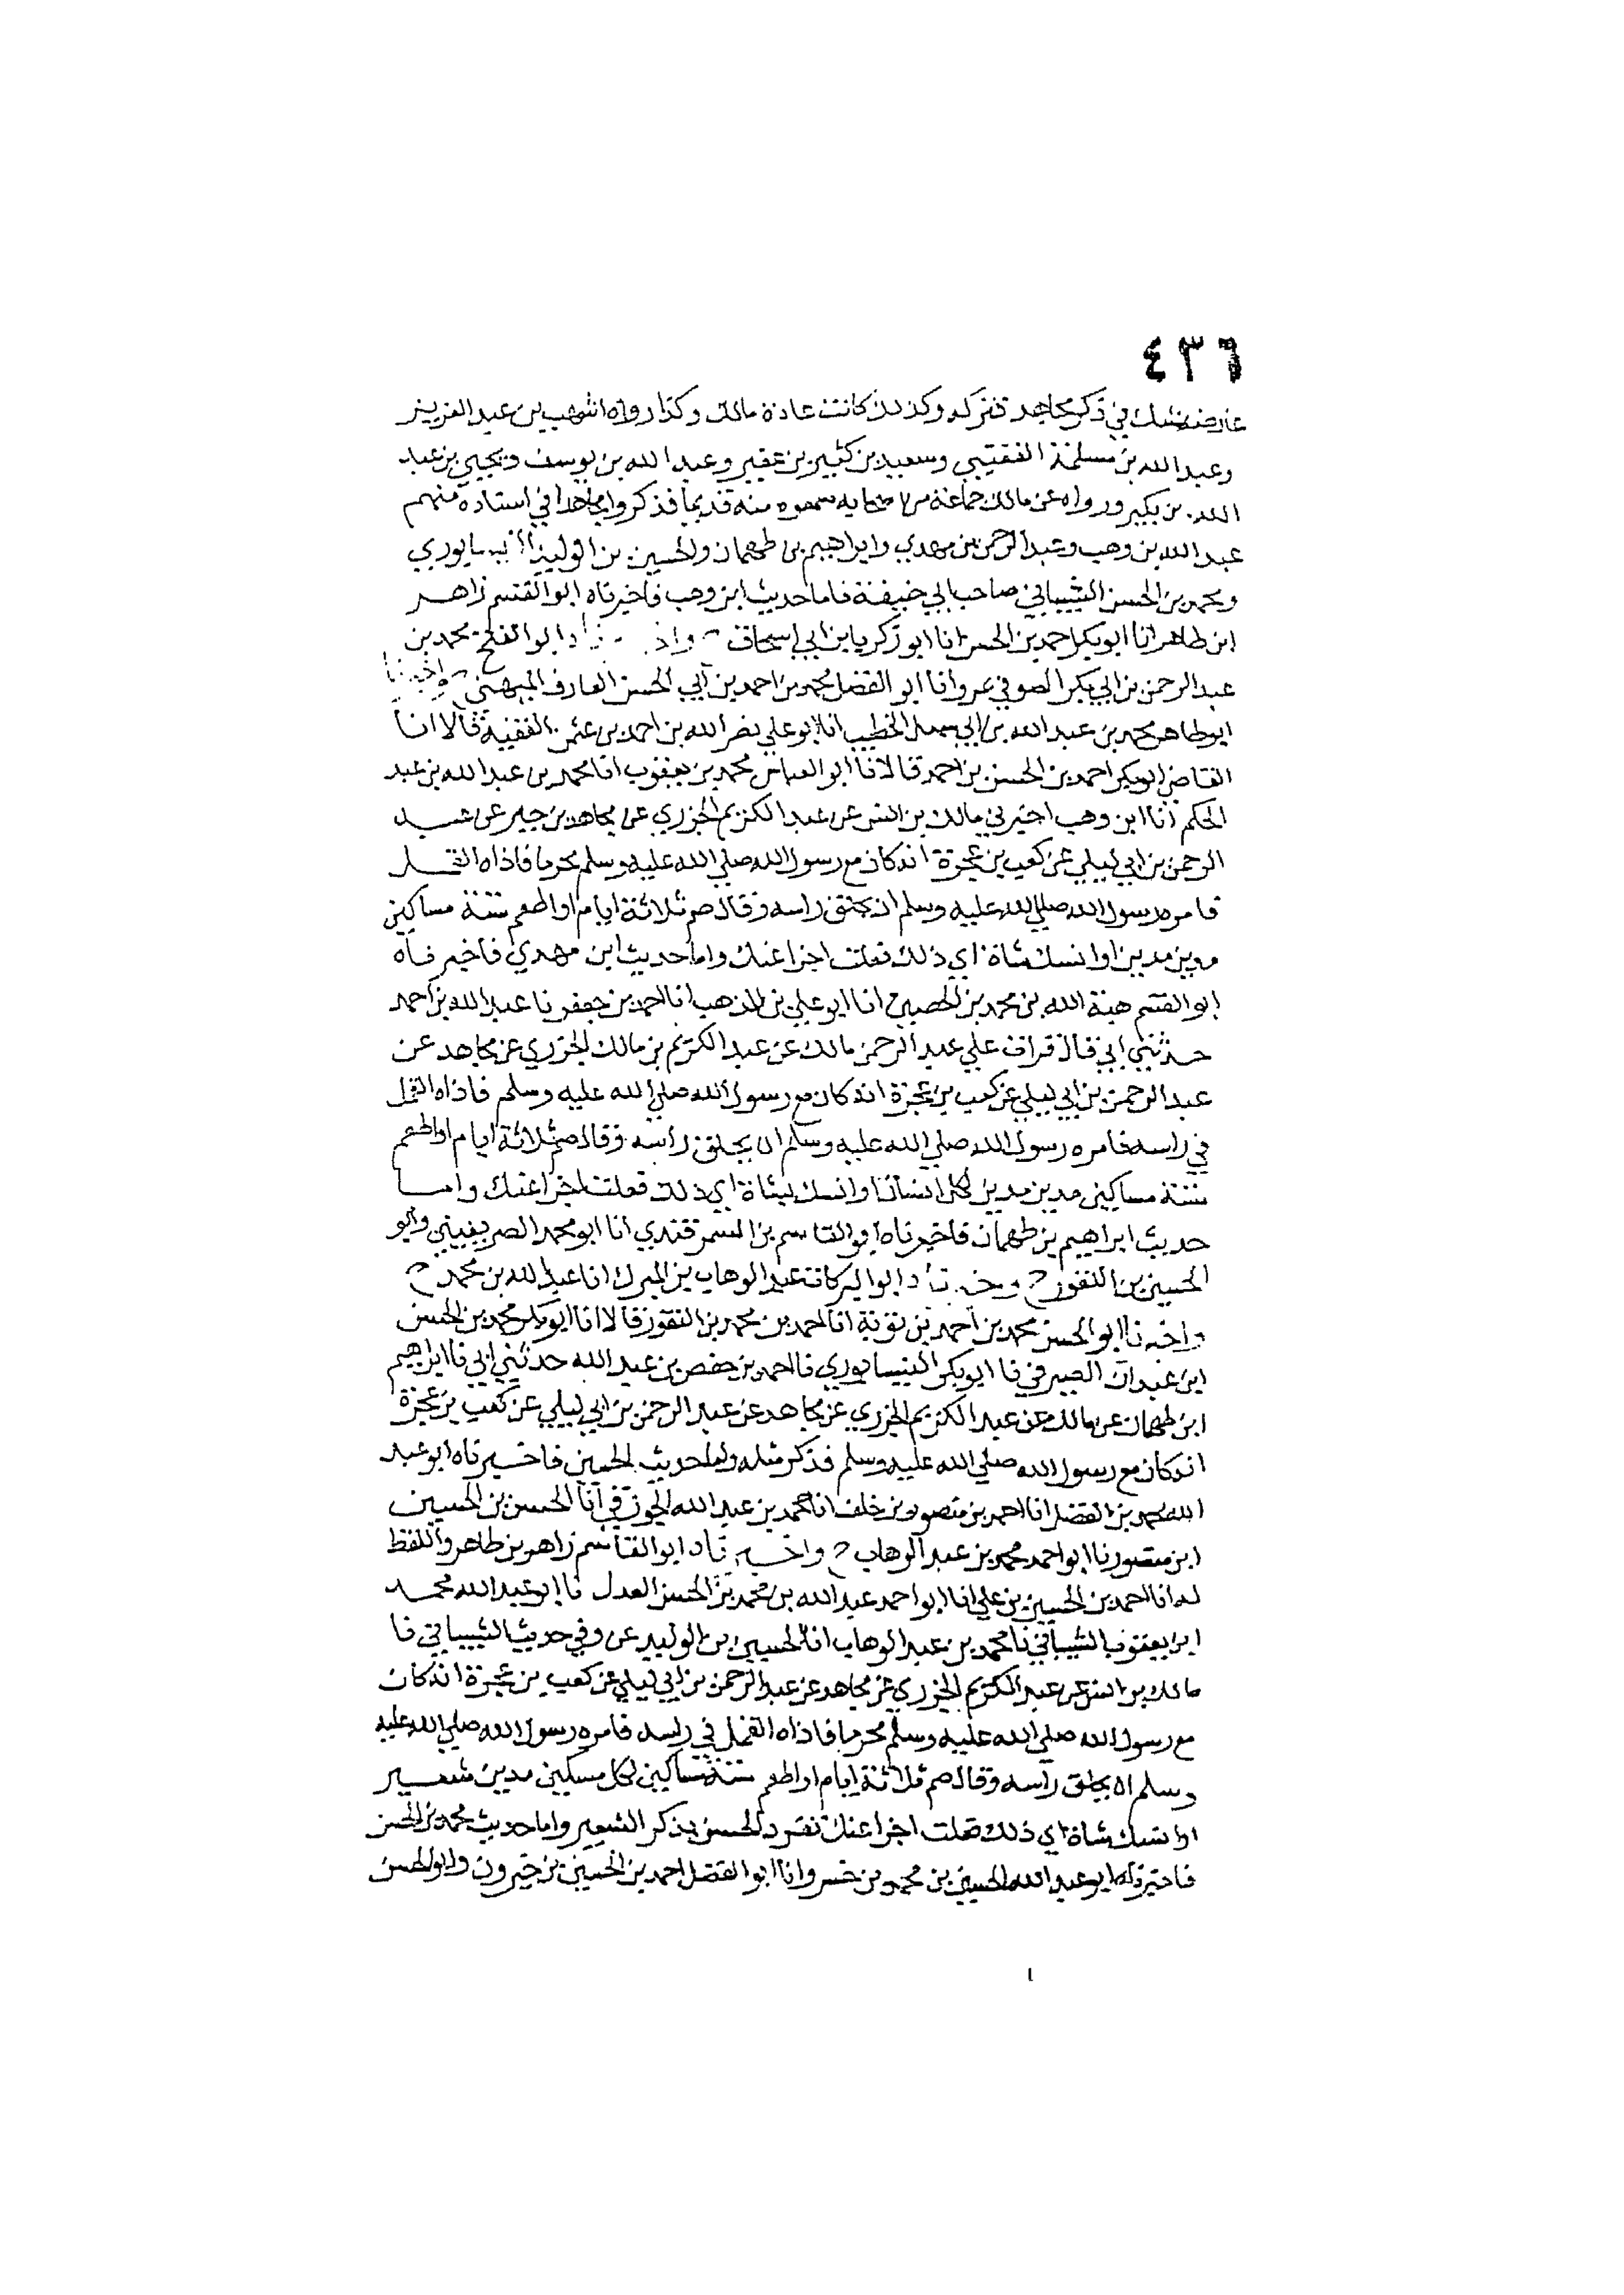 ٤٣٦
عارضه شك في ذكر مجاهد فتركه وكذلك كانت عادة مالك وكذا رواه اشهب بن عبد العزيز
وعبد الله بن مسلمة القعنبي وسعيد بن كثير بن عفير وعبد الله بن يوسف ويحيى بن عبد
الله بن بكير ورواه عن مالك جماعة من اصحابه سمعوه منه قديما فذكروا مجاهدا في اسناده منهم
عبد الله بن وهب وعبد الرحمن بن مهدي وابراهيم بن طهمان والحسين بن الوليد النيسابوري
ومحمد بن الحسن الشيباني صاحب ابي حنيفة فاما حديث ابن وهب فاخبرناه ابو القسم زاهر
ابن طاهر انا ابو بكر احمد بن الحسن انا ابو زكريا بن ابي اسحاق ح واخبرنا ابو الفتح محمد بن
عبد الرحمن بن ابي بكر الصوفي بمرو انا ابو الفضل محمد بن احمد بن ابي الحسن العارف الميهني ح واخبرنا
ابو طاهر محمد بن عبد الله بن ابي سهل الخطيب انا ابو علي نصر الله بن احمد بن عثمن الفقيه قالا انا
القاضي ابو بكر احمد بن الحسن بن احمد قالا نا ابو العباس محمد بن يعقوب انا محمد بن عبد الله بن عبد
الحكم انا ابن وهب اخبرني مالك بن انس عن عبد الكريم الجزري عن مجاهد بن جبر عن عبد
الرحمن بن ابي ليلي عن كعب بن عجرة انه كان مع رسول الله صلي الله عليه وسلم محرما فاذاه القمل
فامره رسول الله صلي الله عليه وسلم ان يحلق راسه وقال صم ثلاثة ايام او اطعم ستة مساكين
مدين مدين او انسك شاة اي ذلك فعلت اجزا عنك واما حديث ابن مهدي فاخبرناه
ابو القسم هبة الله بن محمد بن الحصين انا ابو علي بن المذهب انا احمد بن جعفر نا عبد الله بن احمد
حدثني ابي قال قرات علي عبد الرحمن مالك عن عبد الكريم بن مالك الجزري عن مجاهد عن
عبد الرحمن بن ابي ليلي عن كعب بن عجرة انه كان مع رسول الله صلي الله عليه وسلم فاذاه القمل
في راسه فامره رسول الله صلي الله عليه وسلم ان يحلق راسه وقال صم ثلاثة ايام او اطعم
ستة مساكين مدين مدين لكل انسان او انسك بشاة اي ذلك فعلت اجزا عنك واما
حديث ابراهيم بن طهمان فاخبرناه ابو القاسم بن السمرقندي انا ابو محمد الصريفيني وابو
الحسين بن النقور ح واخبرنا ابو البركات عبد الوهاب بن المبرك انا عبد الله بن محمد ح
واخبرنا ابو الحسن محمد بن احمد بن توبة انا احمد بن محمد بن النقور قالا انا ابو بكر محمد بن الحسن
ابن عبدان الصيرفي نا ابو بكر النيسابوري نا احمد بن حفص بن عبد الله حدثني ابي نا ابراهيم
ابن طهمان عن مالك عن عبد الكريم الجزري عن مجاهد عن عبد الرحمن بن ابي ليلي عن كعب بن عجرة
انه كان مع رسول الله صلي الله عليه وسلم فذكر مثله واما حديث الحسين فاخبرناه ابو عبد
الله محمد بن الفضل انا احمد بن منصور بن خلف انا محمد بن عبد الله الجوزقي انا الحسن بن الحسين
ابن منصور نا ابو احمد محمد بن عبد الوهاب ح واخبرنا ابو القاسم زاهر بن طاهر واللفظ
له انا احمد بن الحسين بن علي انا ابو احمد عبد الله بن محمد بن الحسن العدل نا ابو عبد الله محمد
ابن يعقوب الشيباني نا محمد بن عبد الوهاب انا الحسين بن الوليد عن وفي حديث الشيباني نا
مالك بن انس عن عبد الكريم الجزري عن مجاهد عن عبد الرحمن بن ابي ليلي عن كعب بن عجرة انه كان
مع رسول الله صلي الله عليه وسلم محرما فاذاه القمل في راسه فامره رسول الله صلي الله عليه
وسلم ان يحلق راسه وقال صم ثلاثة ايام او اطعم ستة مساكين لكل مسكين مدين شعير
او انسك شاة اي ذلك فعلت اجزا عنك تفرد الحسن بذكر الشعير واما حديث محمد بن الحسن
فاخبرناه ابو عبد الله الحسين بن محمد بن خسرو انا ابو الفضل احمد بن الحسين بن خيرون وابو الحسن